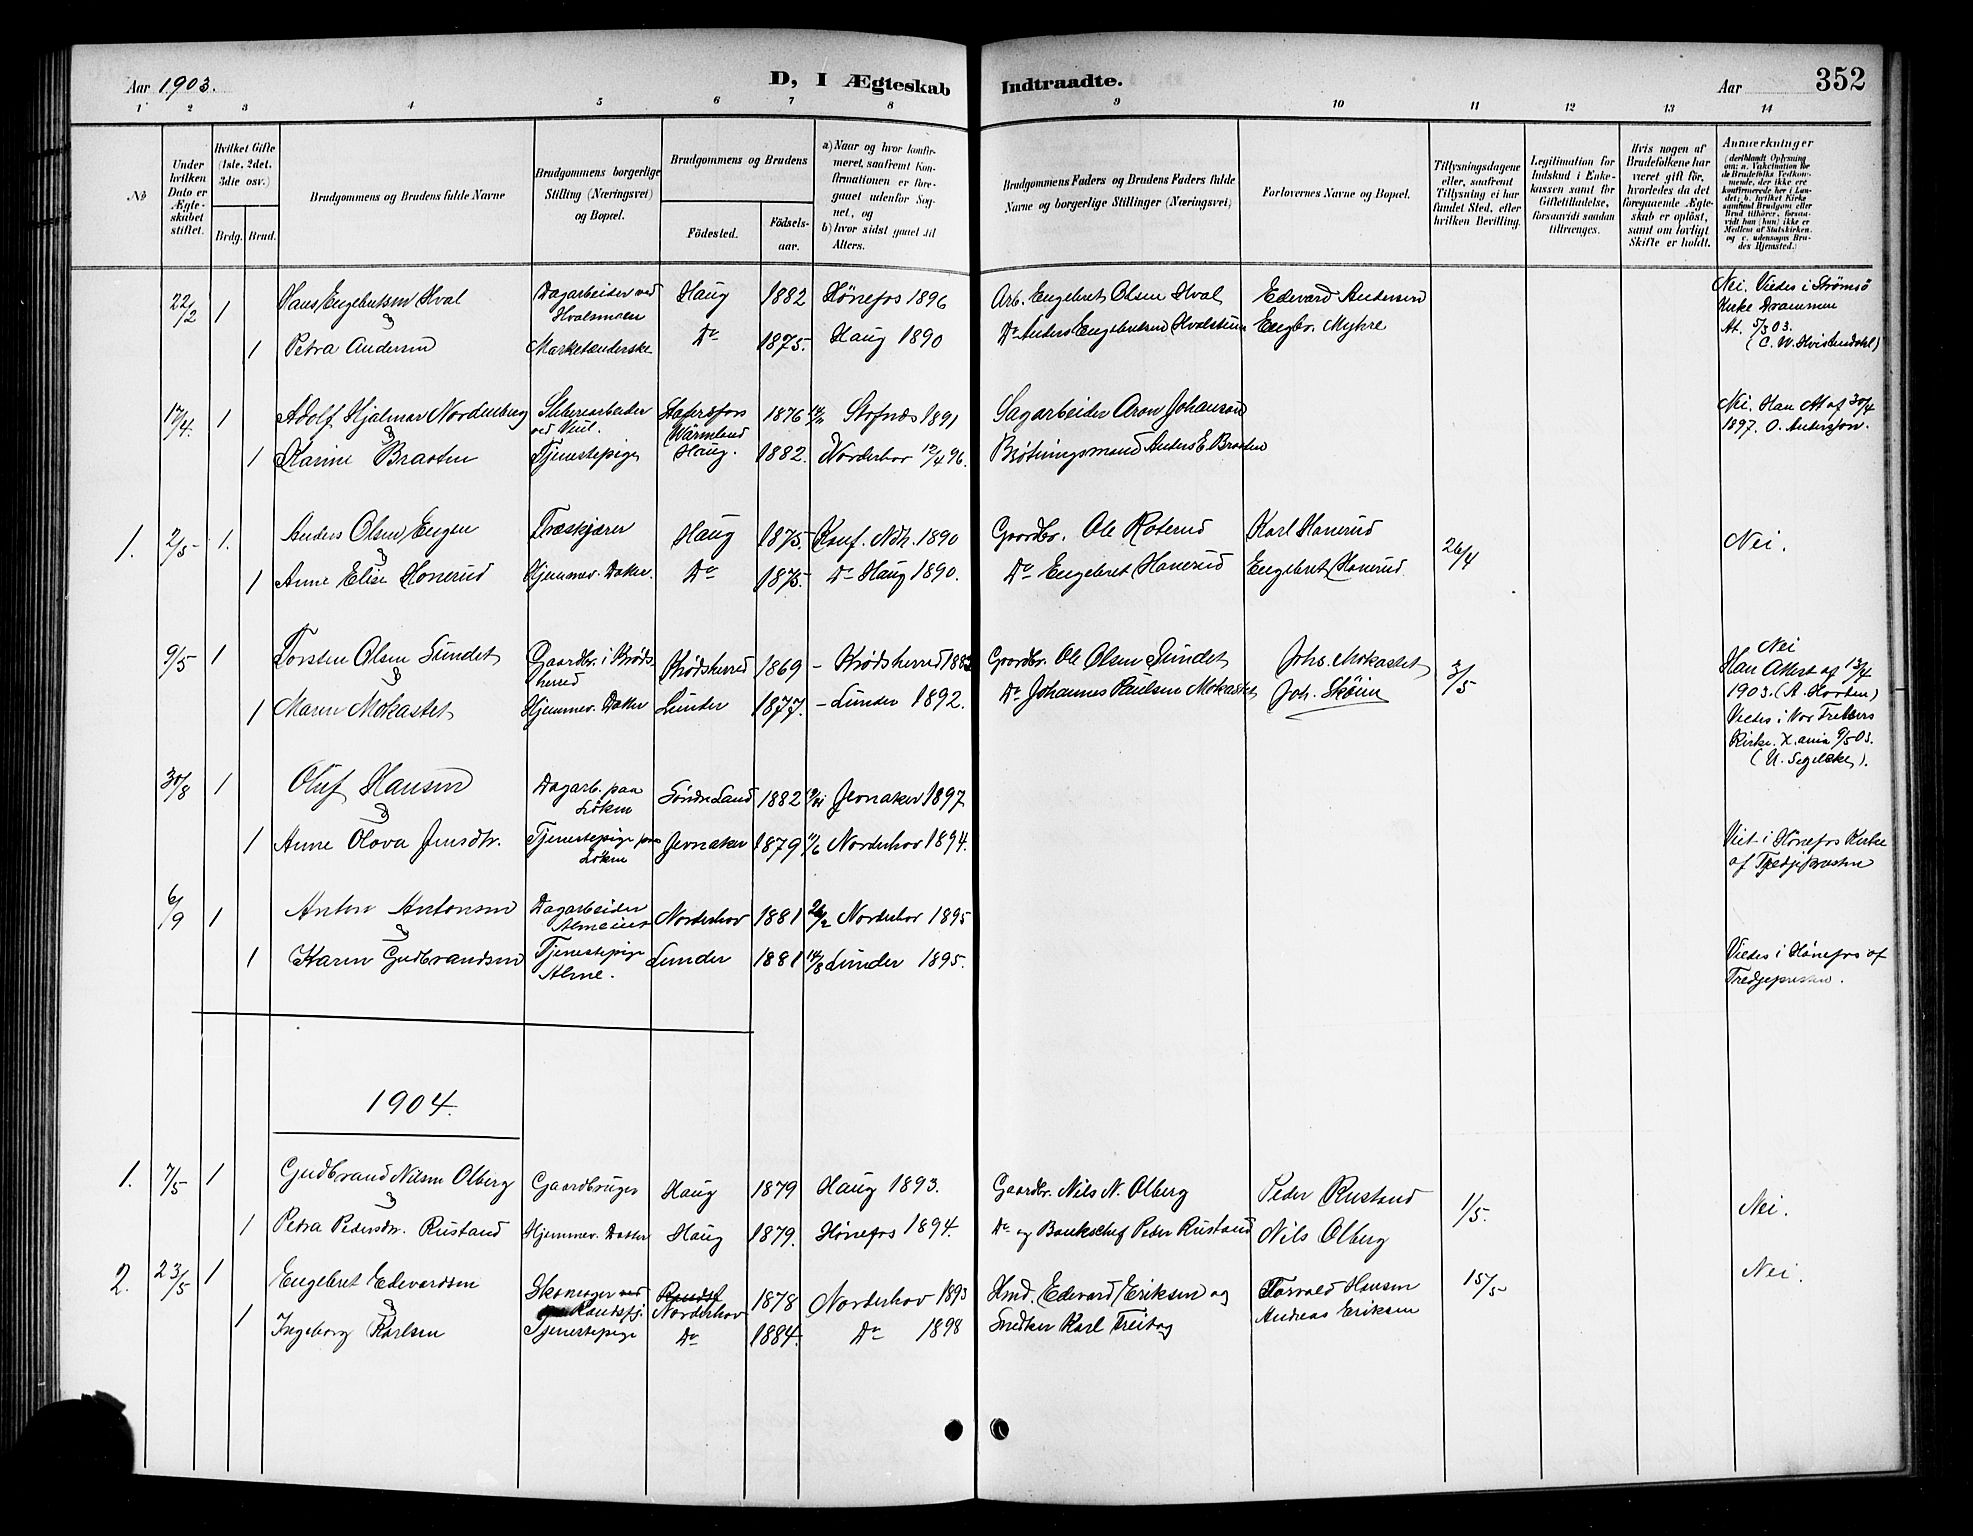 Aar 1903.
D, I Ægteskab Indtraadte.
Aar 352
1 2 3 4 5 6 7 8 9 10 11 12 13 14
No
Under hvilken Dato er Ægteskabet stiftet.
Hvilket Gifte (1ste, 2det, 3die osv.)
Brdg. Brud.
Brudgommens og Brudens fulde Navne
Brudgommens borgerlige Stilling (Næringsvei) og Bopæl.
Brudgommens og Brudens
Födested.
Födselsaar.
a) Naar og hvor konfirmeret, saafremt Konfirmationen er foregaaet udenfor Sognet, og
b) hvor sidst gaaet til Alters.
Brudgommens Faders og Brudens Faders fulde Navne og borgerlige Stillinger (Næringsvei)
Forlovernes Navne og Bopæl.
Tillysningsdagene eller, saafremt Tillysning ei har fundet Sted, efter hvilken Bevilling.
Legitimation for Indskud i Enkekassen samt for Giftetilladelse, forsaavidt saadan tiltrænges.
Hvis nogen af Brudefolkene har været gift för, hvorledes da det foregaaende Ægteskab er oplöst, samt om lovligt Skifte er holdt.
Anmærkninger
(deriblandt Oplysning om: a. Vakcination for de Brudefolks Vedkommende, der ikke ere konfirmerede her i Landet; b. hvilket Kirkesamfund Brudgom eller Brud tilhörer, forsaavidt han (hun) ikke er Medlem af Statskirken, og c. udensogns Brudes Hjemsted.)
22/2 1 Hans Engebretsen Hval Dagarbeider ved Hvalsmoen Haug 1882 Hönefos 1896 Arb. Engebret Olsen Hval Edevard Andersen Nei. Viedes i Strömsö Kirke Drammen
At. 5/3 03.
(C. W. Hvistendahl)
1 Petra Andersen Marketenderske Do 1875. Haug 1890 Do Anders Engebretsen Hvalstuen Engbr. Myhre
17/4. 1 Adolf Hjalmar Nordenberg Sliberiarbeider ved Veul. Wärmland 1876 1891 Sagarbeider Aron Johanson Nei. Han At af 30/4 1897. O. Andersson.
1 Karine Braaten Tjenestepige Haug. 1882. Norderhov 12/4 96. Bröttningsmand Anders E. Braaten
1. 2/5 1. Anders Olsen Eugen Træskjærer Haug 1875. Konf. Ndh. 1890 Gaardbr. Ole Roterud Karl Honerud 26/4 Nei.
1 Anne Elise Honerud Hjemmev. Datter. Do 1875. Do Haug 1890. Do Engebret Honerud Engebret Honerud
9/5 1 Torsten Olsen Sundet Gaardbr. i Krödsherred Krödsherred 1869 - Krödsherred 1883 Gaardbr. Ole Olsen Sundet Johs. Mokastet 3/5 Nei
Han Attest af 13/4 1903. (A. Horten)
1 Maren Mokastet Hjemmev. Datter Lunder 1877. - Lunder 1892. Do Johannes Paulsen Mokastet Joh. Sköien
Viedes i Vor Frelsers Kirke. X.ania 9/5 03.
30/8 1 Oluf Hansen Dagarb. paa Löken Söndre Land 1882 Jevnaker 1897
1 Anne Olava Jensdtr. Tjenestepige paa Löken Jevnaker 1879 11/6 Norderhov 1894. Viet i Hönefos Kirke af Tredjepræsten
6/9 1 Anton Antonsen Dagarbeider Norderhov 1881 Norderhov 1895
1 Karen Gudbrandsen Tjenestepige Alme. Lunder 1881 18/8 Lunder 1895. Viedes i Hönefos af Tredjepræsten.
1904.
1. 7/5 1 Gudbrand Nilsen Olberg Gaardbruger Haug 1879 Haug 1893. Gaardbr. Nils N. Olberg Peder Rustand 1/5. Nei.
1 Petra Pedersdtr. Rustand Hjemmev. Datter Haug 1879. Hönefos 1894. Do og Bankchef Peder Rustand Nils Olberg
2. 23/5 1 Engebret Edevardsen Skomager ved Randsfj. Norderhov 1878 Norderhov 1893 Hmd. Edevard Eriksen og Torvald Hansen 15/5 Nei.
1 Ingeborg Karlsen Tjenestepige Do 1884. Do 1898 Snedker Karl Freitag Andreas Eriksen